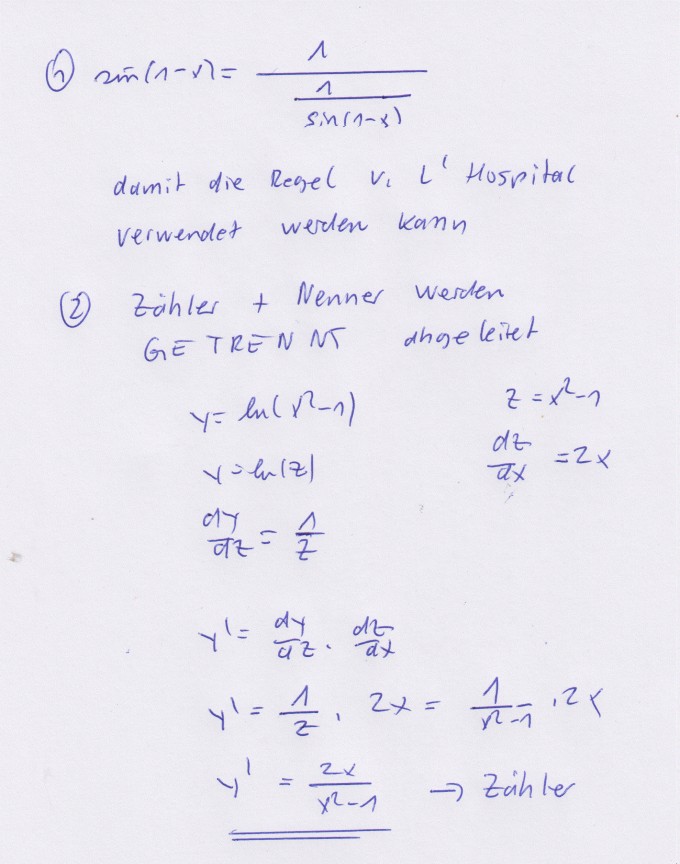 ① sin(1-x) = 1 / (1 / sin(1-x))
damit die Regel v. L' Hospital
verwendet werden kann
② Zähler + Nenner werden
GETRENNT abgeleitet
y = ln(x²-1) z = x²-1
y = ln(z) dz/dx = 2x
dy/dz = 1/z
y' = dy/dz · dz/dx
y' = 1/z · 2x = 1/(x²-1) · 2x
y' = 2x/(x²-1) → Zähler